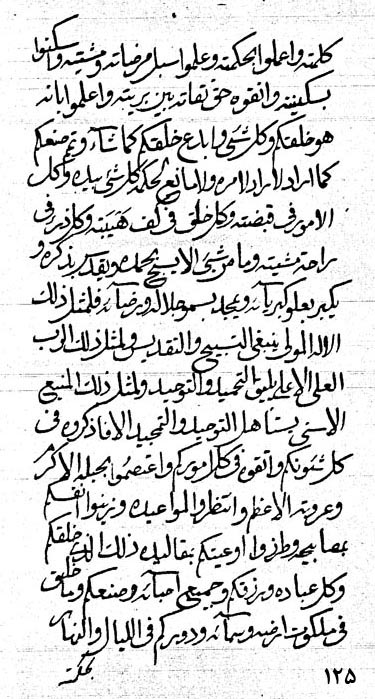 كلمته واعملوا بحكمته وعلموا سبل مرضاته ومشيته واسكنوا
بسكينته واتقوه حق تقاته بين بريته واعلموا بانه
هو خلقكم وكل شئ وابدع خلقكم كما شاء ويصنعكم
كما اراد لا راد لامره ولا مانع لحكمه كل شئ بيده وكل
الامور فى قبضته وكل خلق فى كف هيبته وكل ذر فى
راحة مشيته وما من شئ الا يسبح بحمده ويقدس بذكره و
يكبر بعلو كبريائه ويمجد بسمو جلاله ورضائه فلمثل ذلك
الاله المولى ينبغى التسبيح والتقديس ولمثل ذلك الرب
العلى الاعلى يليق التحميد والتوحيد ولمثل ذلك المنيع
الاسنى يستاهل التوحيد والتمجيد الا فاذكروه فى
كل شئونكم واتقوه فى كل اموركم واعتصموا بحبله الاكرم
وعروته الاعظم وانتظروا لمواعيده وزينوا انفسكم
بمصابيحه وطرزوا اوعيتكم بتقاليده ذلك الذى خلقكم
وكل عباده ورزقكم وجميع احبائه وصنعكم وما خلق
فى ملكوت ارضه وسمائه ودوركم فى الليال والنهار
بحكمته
١٢٥